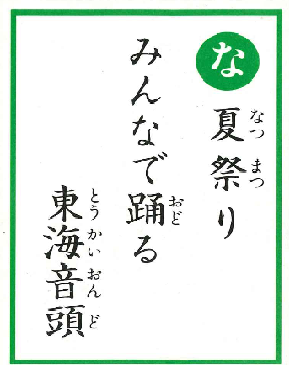 な
夏祭り
なつまつ
みんなで踊る
おど
東海音頭
とうかいおんど